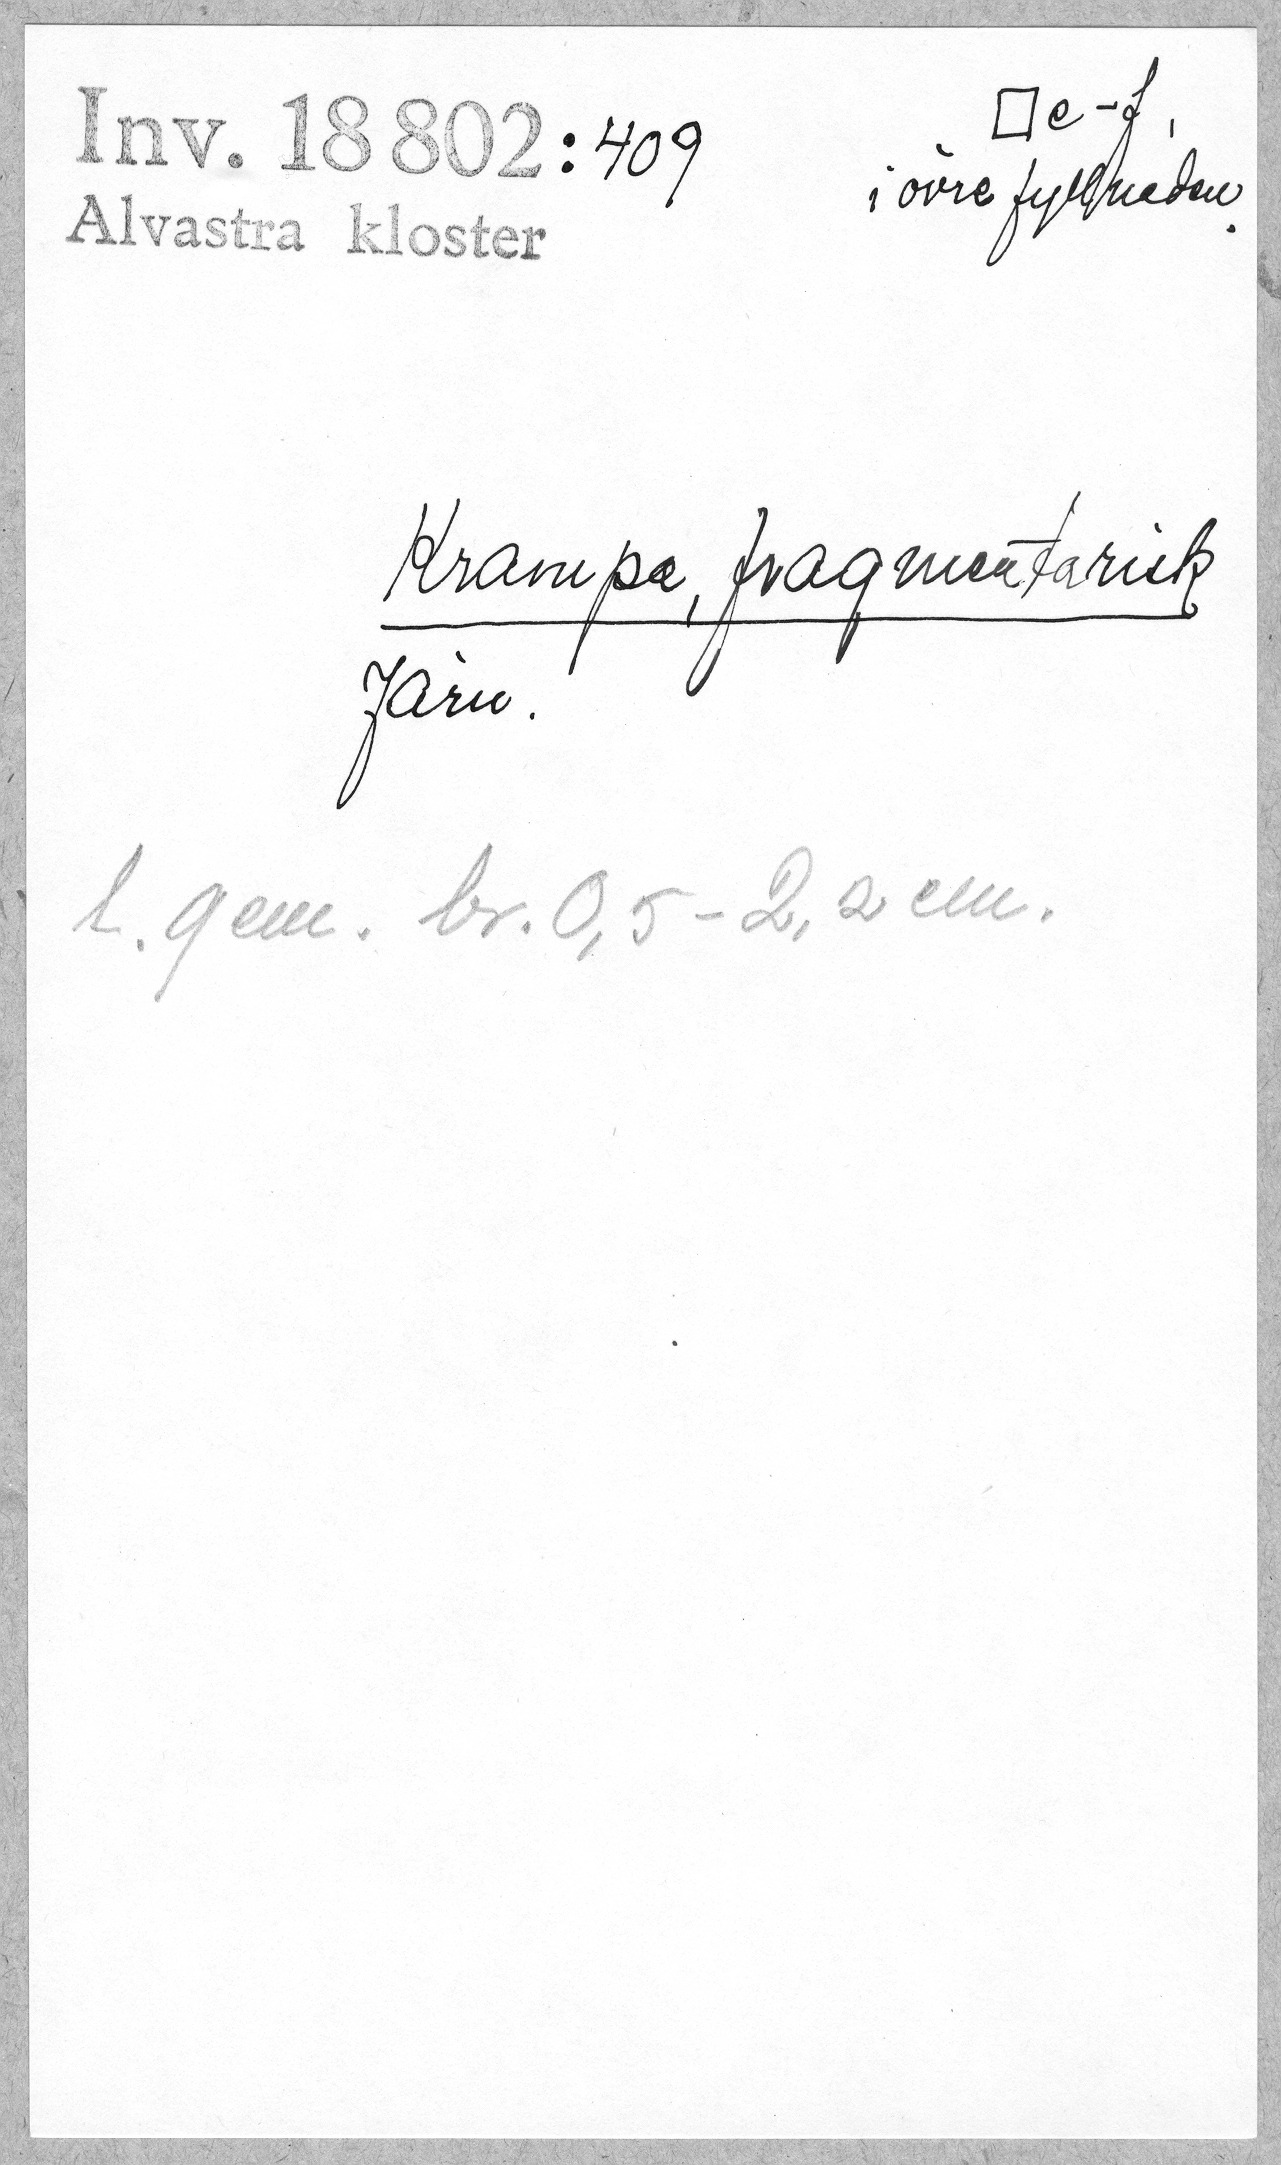 Inv. 18 802:409
Alvastra kloster
□ e-f,
i övre fyllnaden.
Krampa, fragmentarisk
Järn.
L. 9 cm. br. 0,5-2,2 cm.